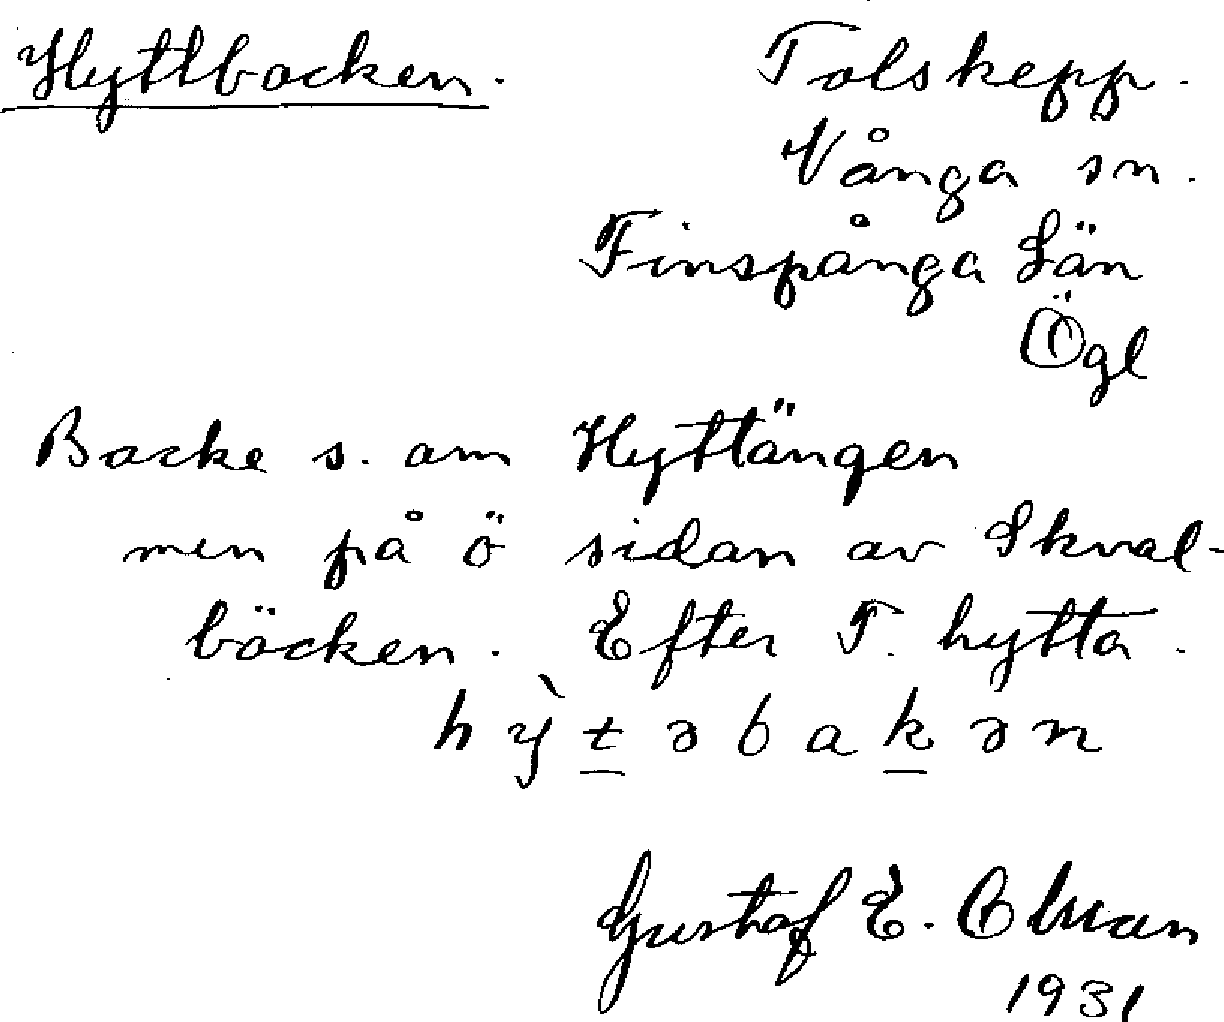 Hyttbacken. Tolskepp.
Vånga sn.
Finspånga Län
Ögl
Backe s. om Hyttängen
men på ö sidan av Skval-
böcken. Efter T. hytta.
hỳt̲əbak̲ən
Gustaf E.
1931